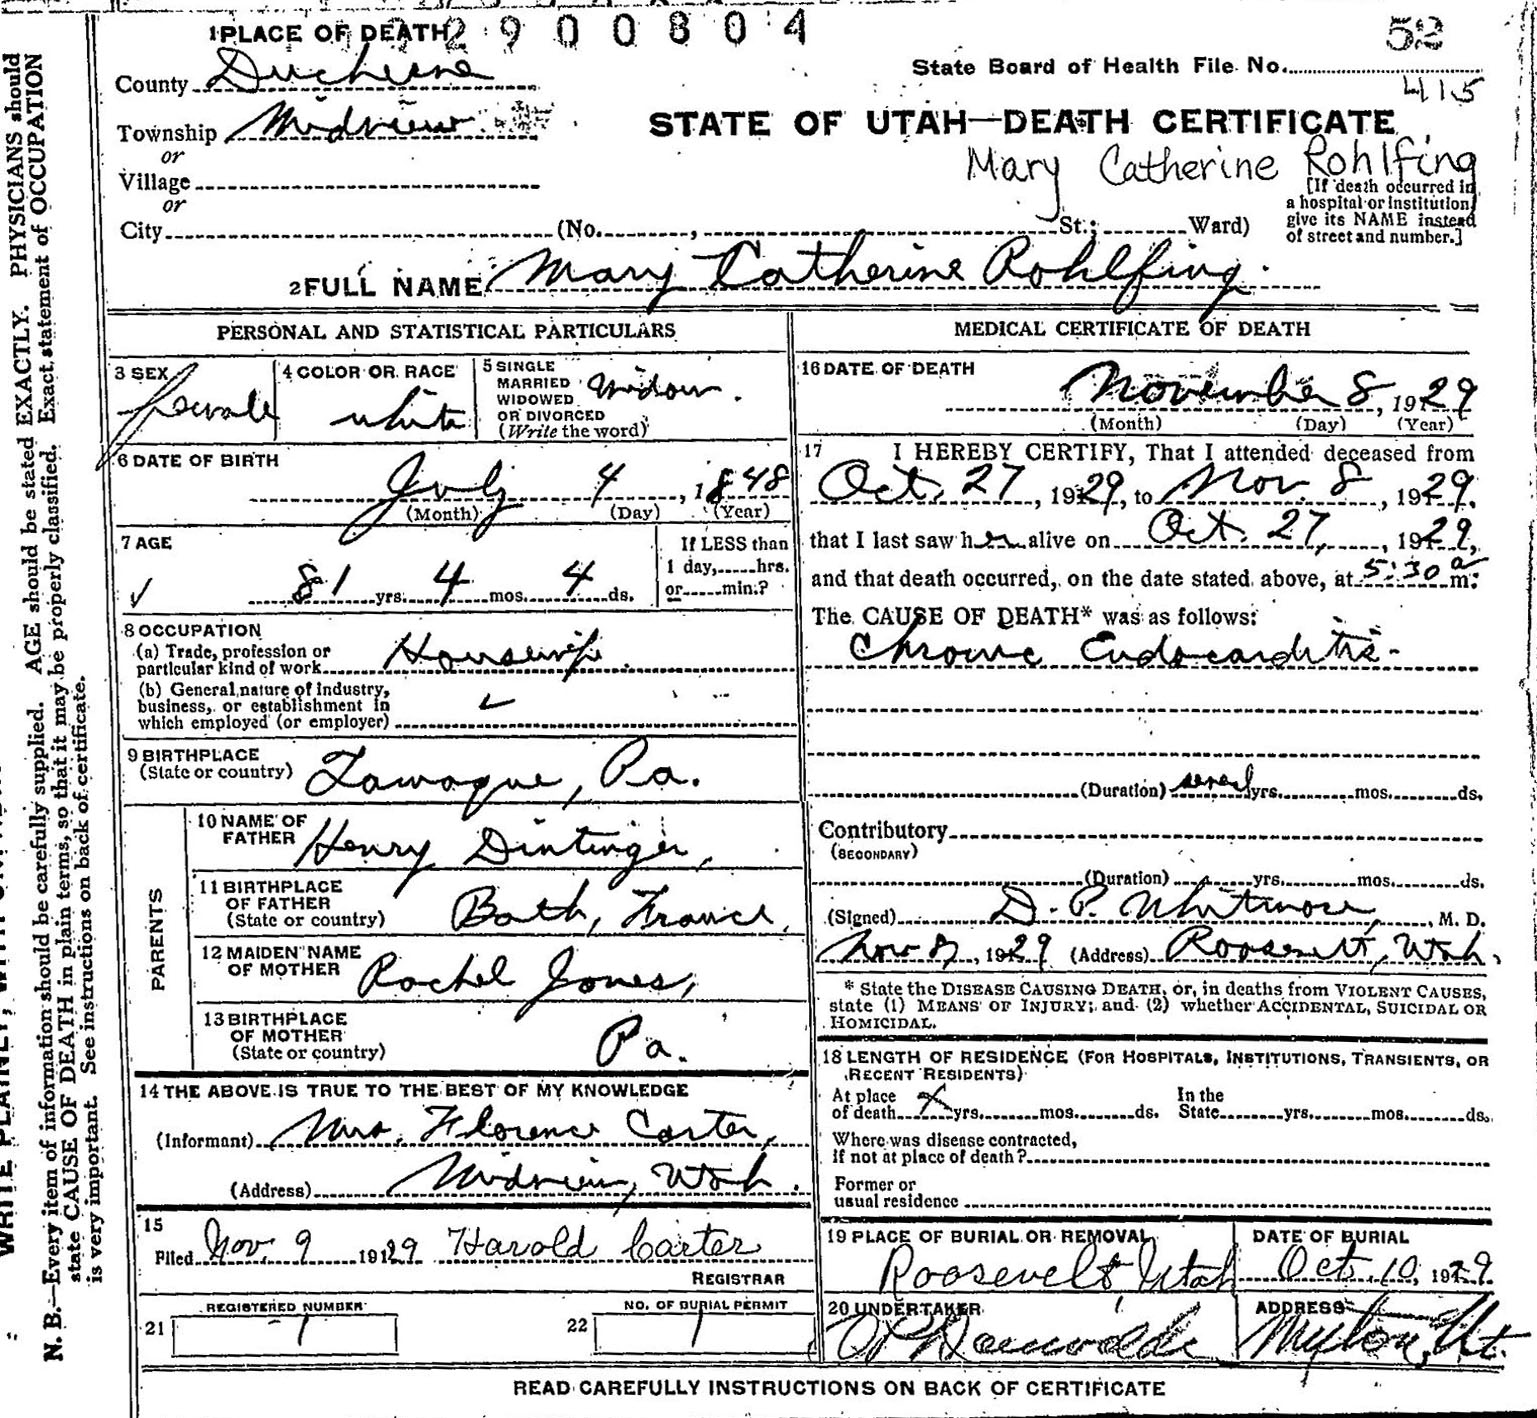 1 PLACE OF DEATH 2900804
52
County Duchesne
State Board of Health File No.
415
Township Midview
STATE OF UTAH—DEATH CERTIFICATE
or
Mary Catherine Rohlfing
Village
or
[If death occurred in
a hospital or institution
give its NAME instead
of street and number.]
City (No. , St.; Ward)
2 FULL NAME Mary Catherine Rohlfing.
PERSONAL AND STATISTICAL PARTICULARS
3 SEX
female
4 COLOR OR RACE
white
5 SINGLE
MARRIED
WIDOWED
OR DIVORCED
(Write the word)
Widow.
6 DATE OF BIRTH
July 4, 1848
(Month) (Day) (Year)
7 AGE
81 yrs. 4 mos. 4 ds.
If LESS than
1 day, hrs.
or min.?
8 OCCUPATION
(a) Trade, profession or
particular kind of work Housewife.
(b) General nature of industry,
business, or establishment in
which employed (or employer)
9 BIRTHPLACE
(State or country) Pa.
PARENTS
10 NAME OF
FATHER Henry Dintinger,
11 BIRTHPLACE
OF FATHER
(State or country) Bath, France,
12 MAIDEN NAME
OF MOTHER Rachel Jones,
13 BIRTHPLACE
OF MOTHER
(State or country) Pa.
14 THE ABOVE IS TRUE TO THE BEST OF MY KNOWLEDGE
(Informant) Mrs. Florence Carter,
(Address) Midview, Utah.
15
Filed Nov. 9 1929 Harold Carter
REGISTRAR
REGISTERED NUMBER
21 1
NO. OF BURIAL PERMIT
22 1
MEDICAL CERTIFICATE OF DEATH
16 DATE OF DEATH
November 8, 1929
(Month) (Day) (Year)
17 I HEREBY CERTIFY, That I attended deceased from
Oct. 27, 1929, to Nov. 8, 1929,
that I last saw her alive on Oct. 27, 1929,
and that death occurred, on the date stated above, at 5:30 a m.
The CAUSE OF DEATH* was as follows:
Chronic Endocarditis-
(Duration) several yrs. mos. ds.
Contributory
(SECONDARY)
(Duration) yrs. mos. ds.
(Signed) D. P. Whitmore, M. D.
Nov 8, 1929 (Address) Roosevelt, Utah.
* State the DISEASE CAUSING DEATH, or, in deaths from VIOLENT CAUSES,
state (1) MEANS OF INJURY; and (2) whether ACCIDENTAL, SUICIDAL OR
HOMICIDAL.
18 LENGTH OF RESIDENCE (FOR HOSPITALS, INSTITUTIONS, TRANSIENTS, OR
RECENT RESIDENTS)
At place In the
of death X yrs. mos. ds. State yrs. mos. ds.
Where was disease contracted,
If not at place of death?
Former or
usual residence
19 PLACE OF BURIAL OR REMOVAL
Roosevelt Utah
DATE OF BURIAL
Oct. 10, 1929
20 UNDERTAKER
ADDRESS
Myton, Ut.
READ CAREFULLY INSTRUCTIONS ON BACK OF CERTIFICATE
N. B.—Every item of information should be carefully supplied. AGE should be stated EXACTLY. PHYSICIANS should
state CAUSE OF DEATH in plain terms, so that it may be properly classified. Exact statement of OCCUPATION
is very important. See instructions on back of certificate.